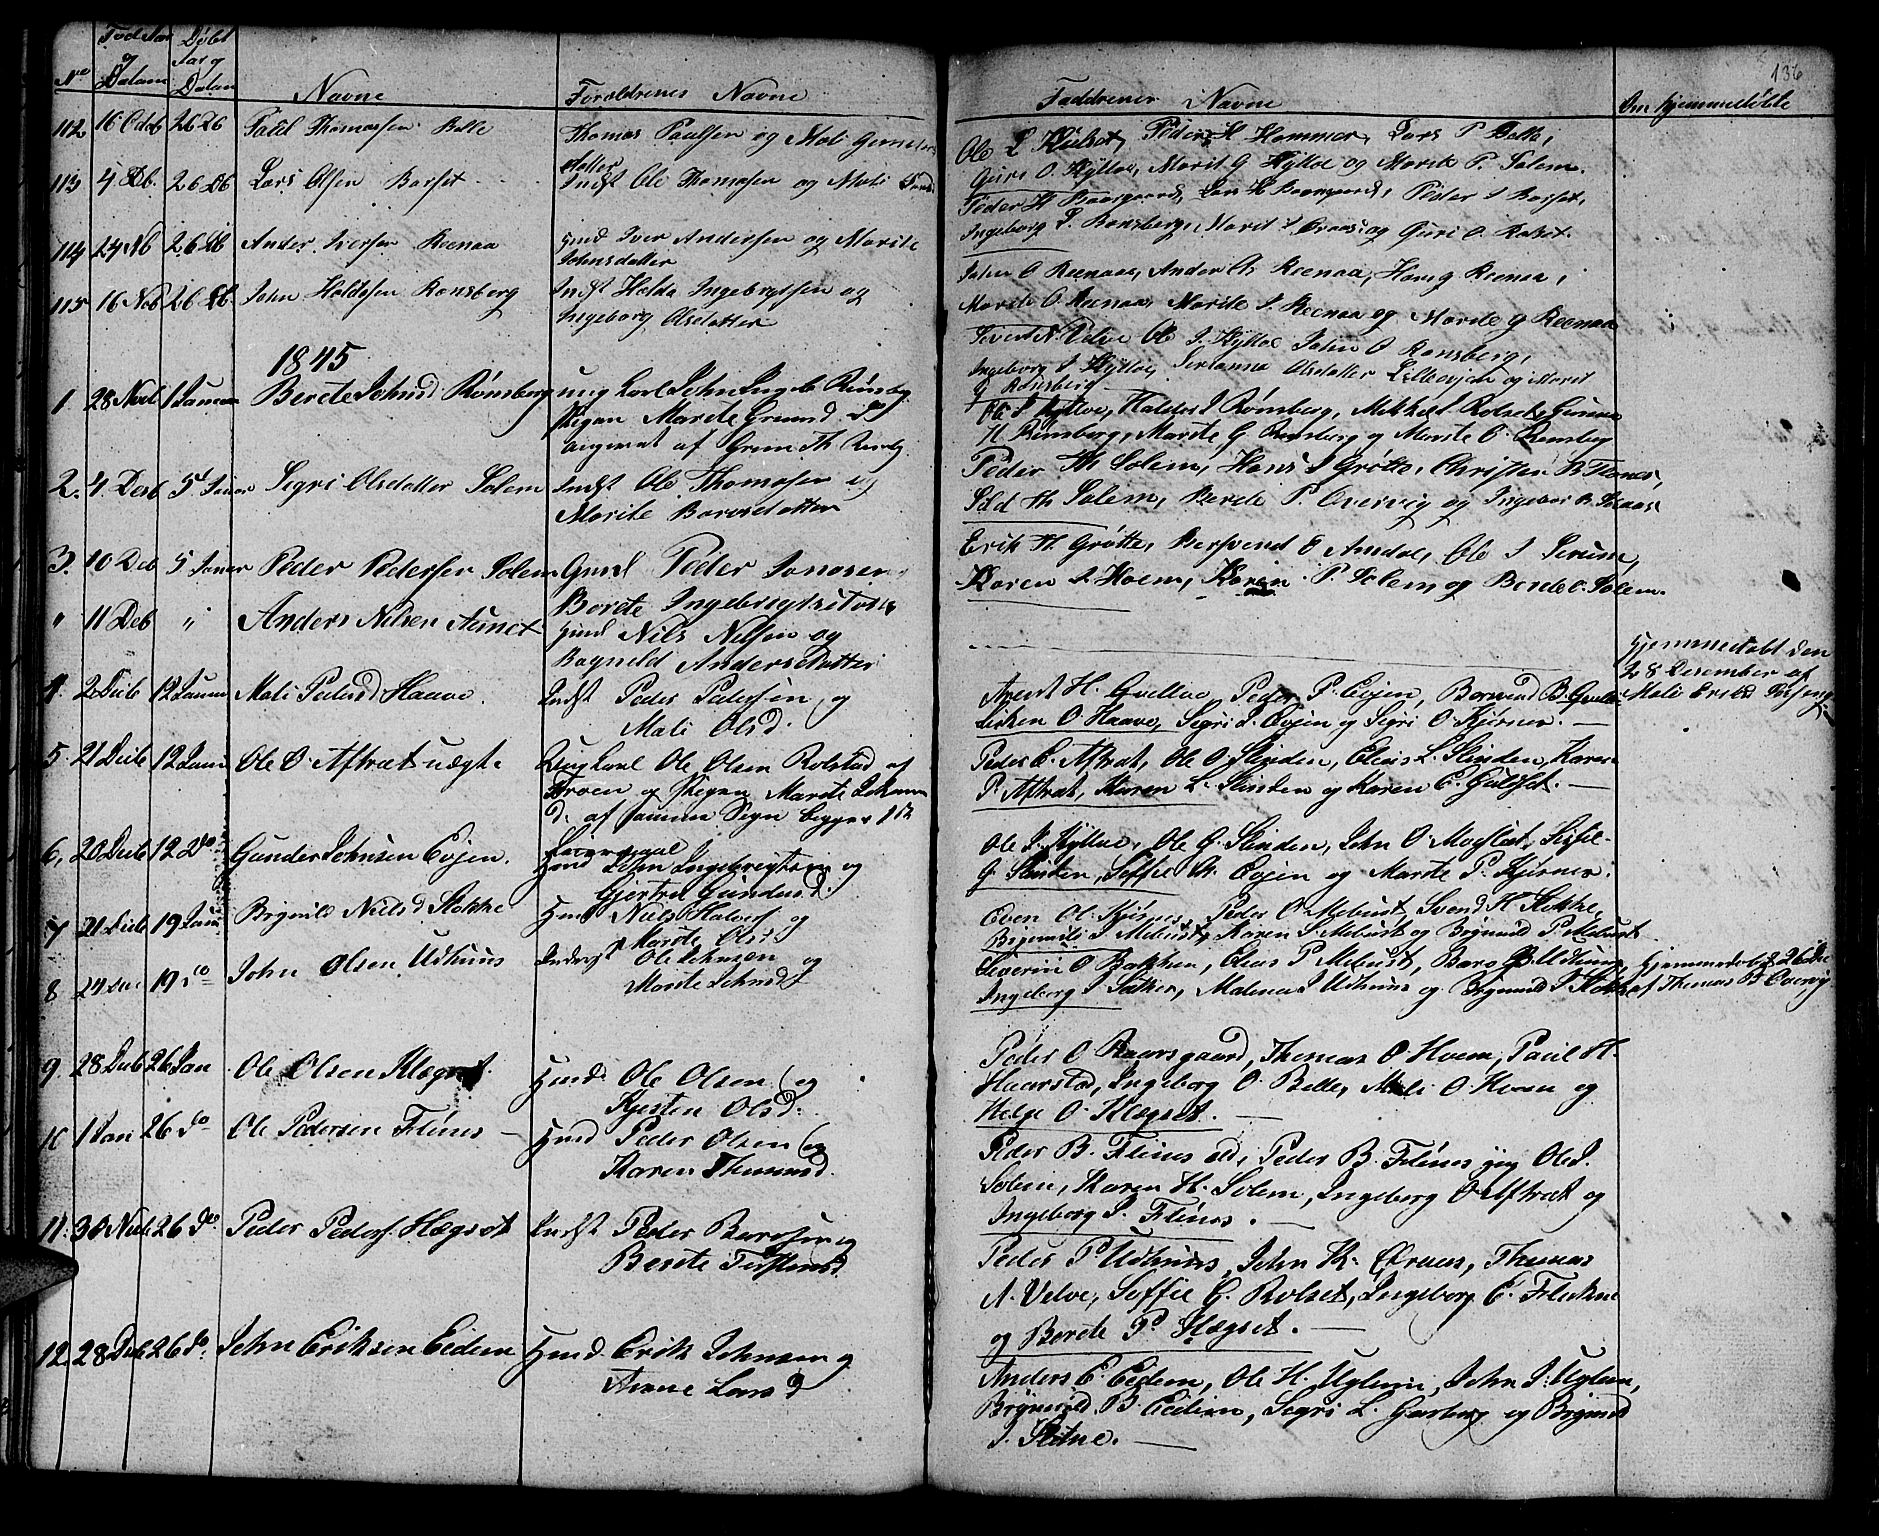 136
No
Født Aar og Datum
Døbt Aar og Datum
Navne
Forældrenes Navne
Faddrenes Navne
Om hjemmedøbte
112 16 Octb 26 26 Paul Thomassen Belle
Thomas Paulsen og Mali Gunders
datter
Peder H Hammer, Lars P Belle,
Guri O Hyllve, Marit G Hyllve og Marit P. Solem.
113 4 Db 26 Db Lars Olsen Borset
Indst Ole Thomasen og Mali
Peder H Baarsgaard, Lars H Baarsgaard, Peder I Borset,
Ingeborg L. Ronsberg, Marit og Guri O. Rolset.
114 24 Nb 26 Db Anders Iversen Reenaa
Huusmd Iver Andersen og Marite
Johnsdatter
John O Reenaas, Anders As Reenaa, Hans G Reenaa,
Marite O Reenaa, Marite I. Reenaa og Marite G Reenaa
115 16 Nob 26 Db John Holdosen Ronsberg
Indst Holda Ingebrigtsen og
Ingeborg Olsdatter
Sivert N. Velve Ole I. Hyllve John O Ronsberg,
Ingeborg I Hyllve, Serianna Olsdatter Lilleevjen og Marit
G Ronsberg
1845
1. 28 Novb 1 Januar Berete Johnsd Rønsberg
ung Karl John Ingeb. Rønsbg
Pigen Marete Grunnd. Do
angivet af Gr Th Rønsbg
Ole I Hyllve, Haldo I Rønsberg, Mikkel I. Rolset, Guruna
H. Rønsberg, Marite G. Rønsberg og Marite O. Rønsberg
2. 4 Desb 5t Januar Segri Olsdatter Solem
Indst Ole Thomasen og
Marite Baroesdatter
Peder Th Solem, Hans I Grøtte, Christen B. Flønes,
Sld Th Solem, Berete P. Overvig og Ingebor B.
3. 10 Deb 5 Januar Peder Pedersen Solem
Gmd Peder Jonasen
Berete Ingebrigtsdatter
Erik H. Grøtte, Bersvend E Amdal, Ole I Serum,
Karen I. Hoem, Karin P. Solem og Berete O. Solem.
" 11 Deb " Anders Nilsen Aunet
Hmd Nils Nilsen og
Bagneld Andersdatter
hjemmedøbt den
28 Desember af
Mali Ersd
4. 2 Decb 12 Januar Mali Pedersd Haave.
Indst Peder Pedersen og
Mali Olsd.
Arent H. Gvellve, Peder P. Evjen, Bersvend B. Gvellve
O Haave, Segri I. Evjen og Segri O. Kjørnes.
5. 21 Decb 12 Janu Ole O Aftræt uægt.
Ung Karl Ole Olsen Rolstad af
Froen og Pigen Marete Johann
D. af samme Sogn begges 1ste
Leiermaal
Peder E. Aftræt, Ole O Slinden, Elias L. Slinden, Karen
P Aftræt, Maren L. Slinden og Karen E. Gulset.
6, 20 Decb 12 Do Gunder Johnsen Evjen.
Hmd John Ingebrigtsen og
Gjertru Gundersd.
Ole I. Hyllve, Ole G. Slinden, John O. Moslet, Sissel
G. Slinden, Soffie A. Evjen og Marete P. Kjørnes.
7 21 Decb 19 Janu Brynild Nielsd Stokke
Hmd Niels Halvors og
Marete Olsd
Even Ol. Kjørnes, Peder O Mebust, Svend H Stokke,
I Mebust, Karen I. Mebust og Brynild P. Mebust
8 24 Dec 19 do John Olsen Udhuus
Inderst Ole Johnsen og
Marete Johnsd
Severin O Bakken, Elias P. Mebust, Baro B. Udhuus
Ingeborg I Sætter, Malena I Udhuus og Brynild I Stokke
Hjemmedøbt 26de
af Thomas B. Overvig
9. 28 Decb 26 Jan Ole Olsen Klegset.
Hmd Ole Olsen og
Kjersten Olsd.
Peder O Baarsgaard, Thomas O Hoem, Paul H.
Haarstad, Ingeborg O. Belle, Mali O Hoem og
Helge O. Klægset.
10 1 Jan 26 do Ole Pedersen Flønes
Hmd Peder Olsen og
Karen Thomasd.
Peder B. Flønes eld, Peder B. Flønes yng, Ole I.
Solem, Karen H. Solem, Ingeborg O Aftræt og
Ingeborg I. Flønes.
11. 30 Novb 26 Do. Peder Peders. Hægset
Indst Peder Baroesen og
Berete Torstensd.
Peder P. Udhuus, John K. Øraas, Thomas
A. Velve, Soffie G. Rolset, Ingeborg E. Flakne
og Berete P. Hægset.
12. 28 Deb 26 do. John Eriksen Eidem
Hmd. Erik Johnsen og
Anne Larsd
Anders E. Eidem, Ole H. Uglem, John I. Uglem,
Brynild B. Eidem, Segri L. Garberg og Brynild
I. Sletne.